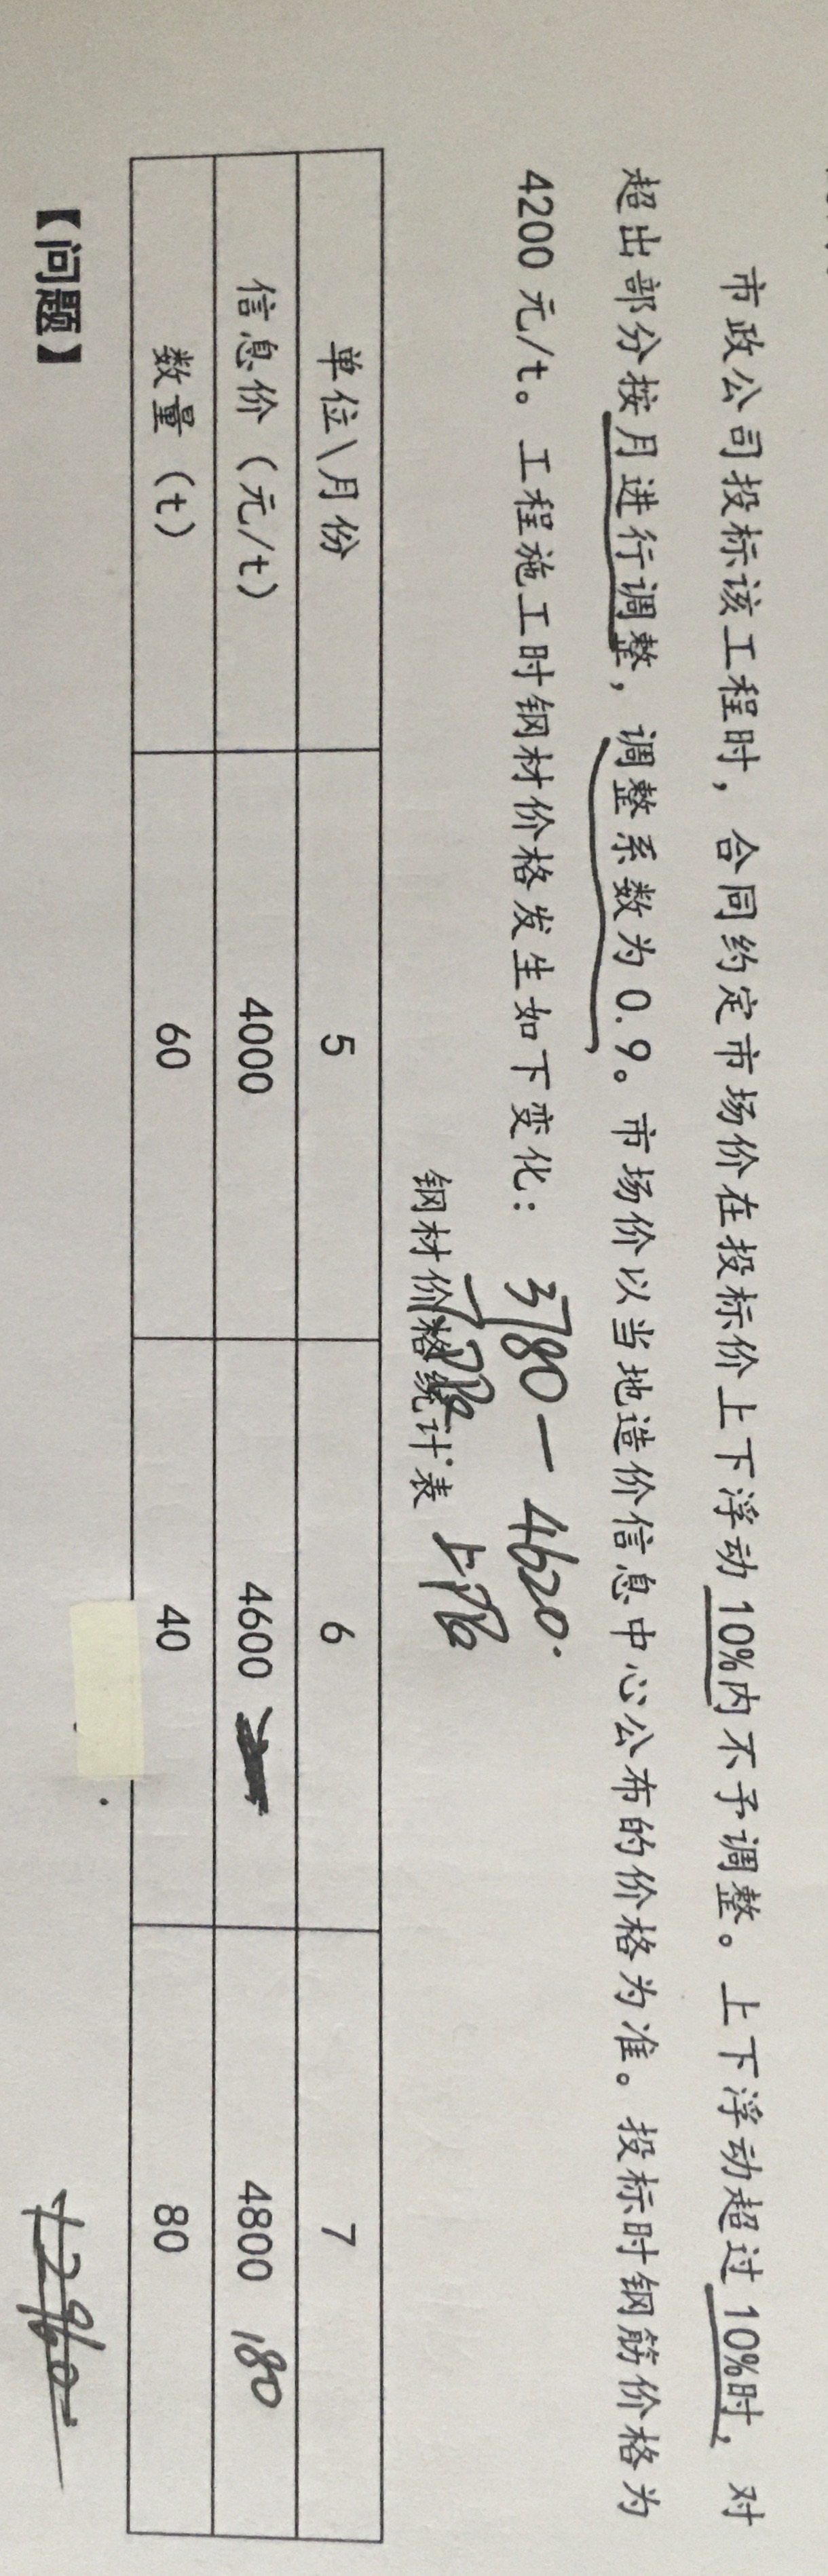 市政公司投标该工程时，合同约定市场价在投标价上下浮动10%内不予调整。上下浮动超过10%时，对
超出部分按月进行调整，调整系数为0.9。市场价以当地造价信息中心公布的价格为准。投标时钢筋价格为
4200元/t。工程施工时钢材价格发生如下变化：
3780－4620.
下限 上限
钢材价格统计表
单位\月份 5 6 7
信息价（元/t） 4000 4600 4800 180
数量（t） 60 40 80
【问题】
12960